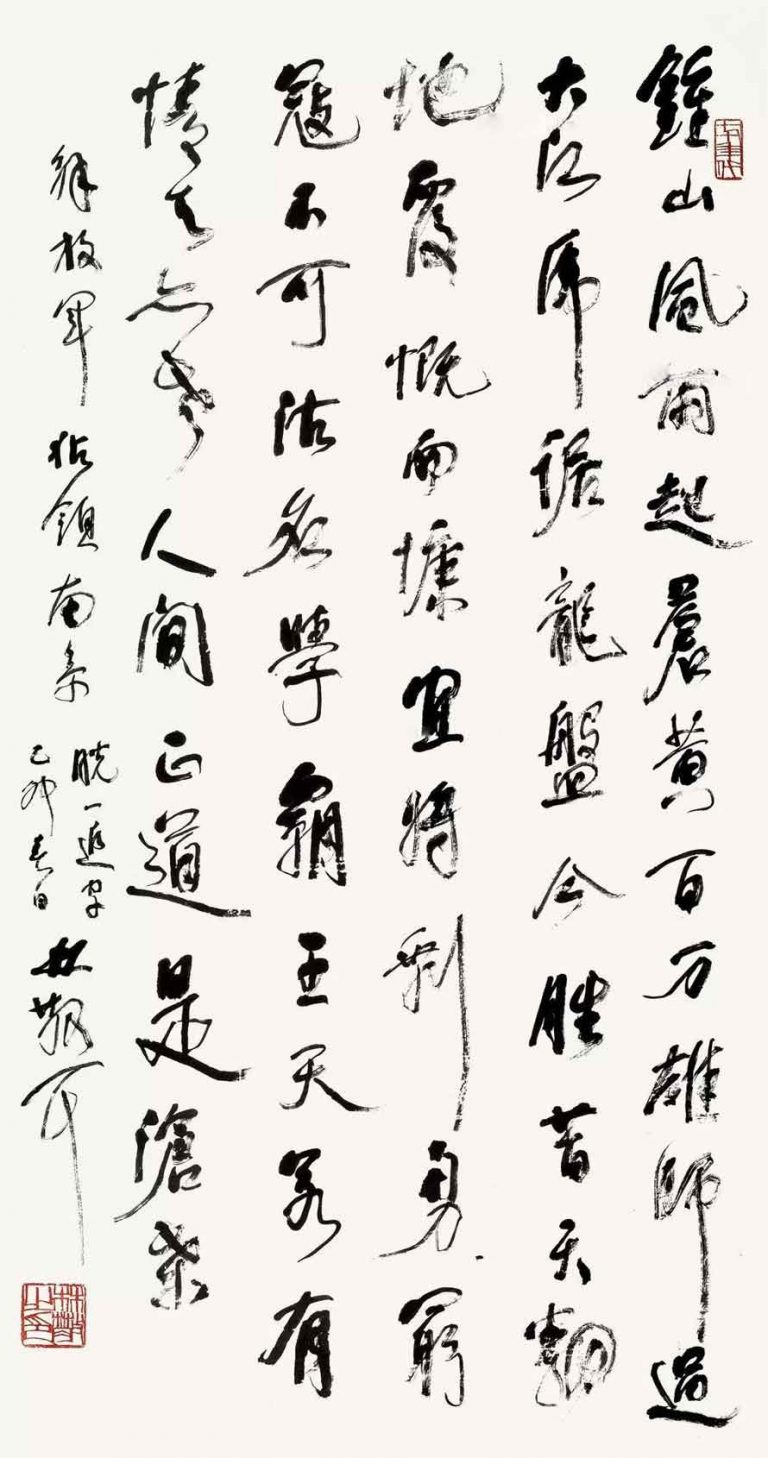 鍾山風雨起蒼黄百万雄師過
大江虎踞龍盤今勝昔天翻
地覆慨而慷宜將剩勇窮
寇不可沽名學霸王天若有
情天亦老人間正道是滄桑
解放軍佔領南京
脱一追字
乙卯春日
林散耳
林散之印